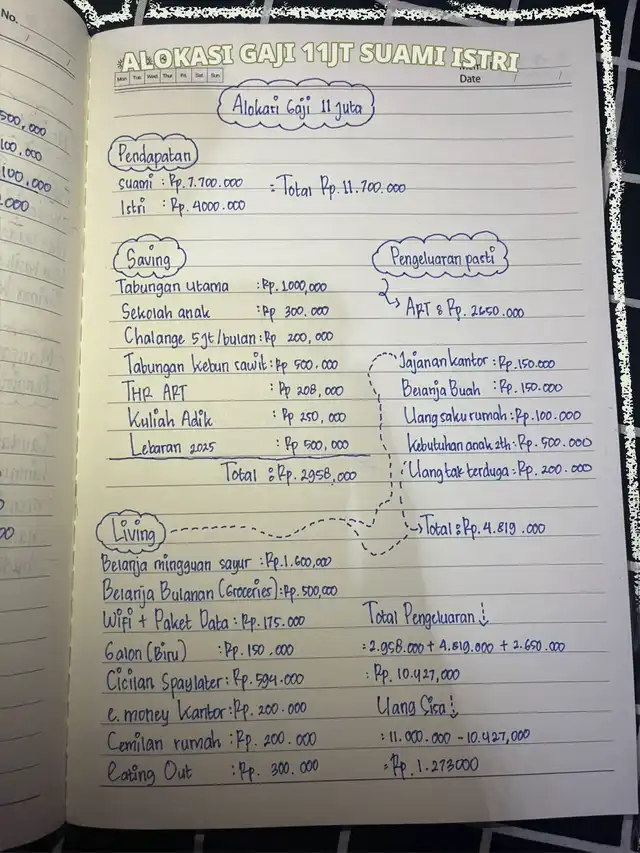 No.
500,000
100,000
100,000
.000
00
ALOKASI GAJI 11JT SUAMI ISTRI
Mon Tue Wed Thu Fri Sat Sun
Date
Alokasi Gaji 11 Juta
Pendapatan
Suami : Rp. 7.700.000 = Total Rp. 11.700.000
Istri : Rp. 4000.000
Saving
Tabungan utama : Rp. 1000,000
Sekolah anak : Rp 300.000
Chalange 5jt/bulan : Rp 200,000
Tabungan kebun sawit : Rp 500.000
THR ART : Rp 208,000
Kuliah Adik : Rp 250,000
Lebaran 2025 : Rp 500,000
Total : Rp. 2958,000
Pengeluaran pasti
ART : Rp. 2650.000
Jajanan kantor : Rp. 150.000
Belanja Buah : Rp. 150.000
Uang saku rumah : Rp. 100.000
Kebutuhan anak 2th : Rp. 500.000
Uang tak terduga : Rp. 200.000
Total : Rp. 4.819.000
Living
Belanja mingguan sayur : Rp. 1.600,000
Belanja Bulanan (Groceries) : Rp. 500,000
Wifi + Paket Data : Rp. 175.000
Galon (Biru) : Rp. 150.000
Cicilan Spaylater : Rp. 594.000
e. money kantor : Rp. 200.000
Cemilan rumah : Rp. 200.000
Eating Out : Rp. 300.000
Total Pengeluaran
= 2.958.000 + 4.819.000 + 2.650.000
: Rp. 10.427,000
Uang Sisa
: 11.000.000 - 10.427,000
= Rp. 1.273000